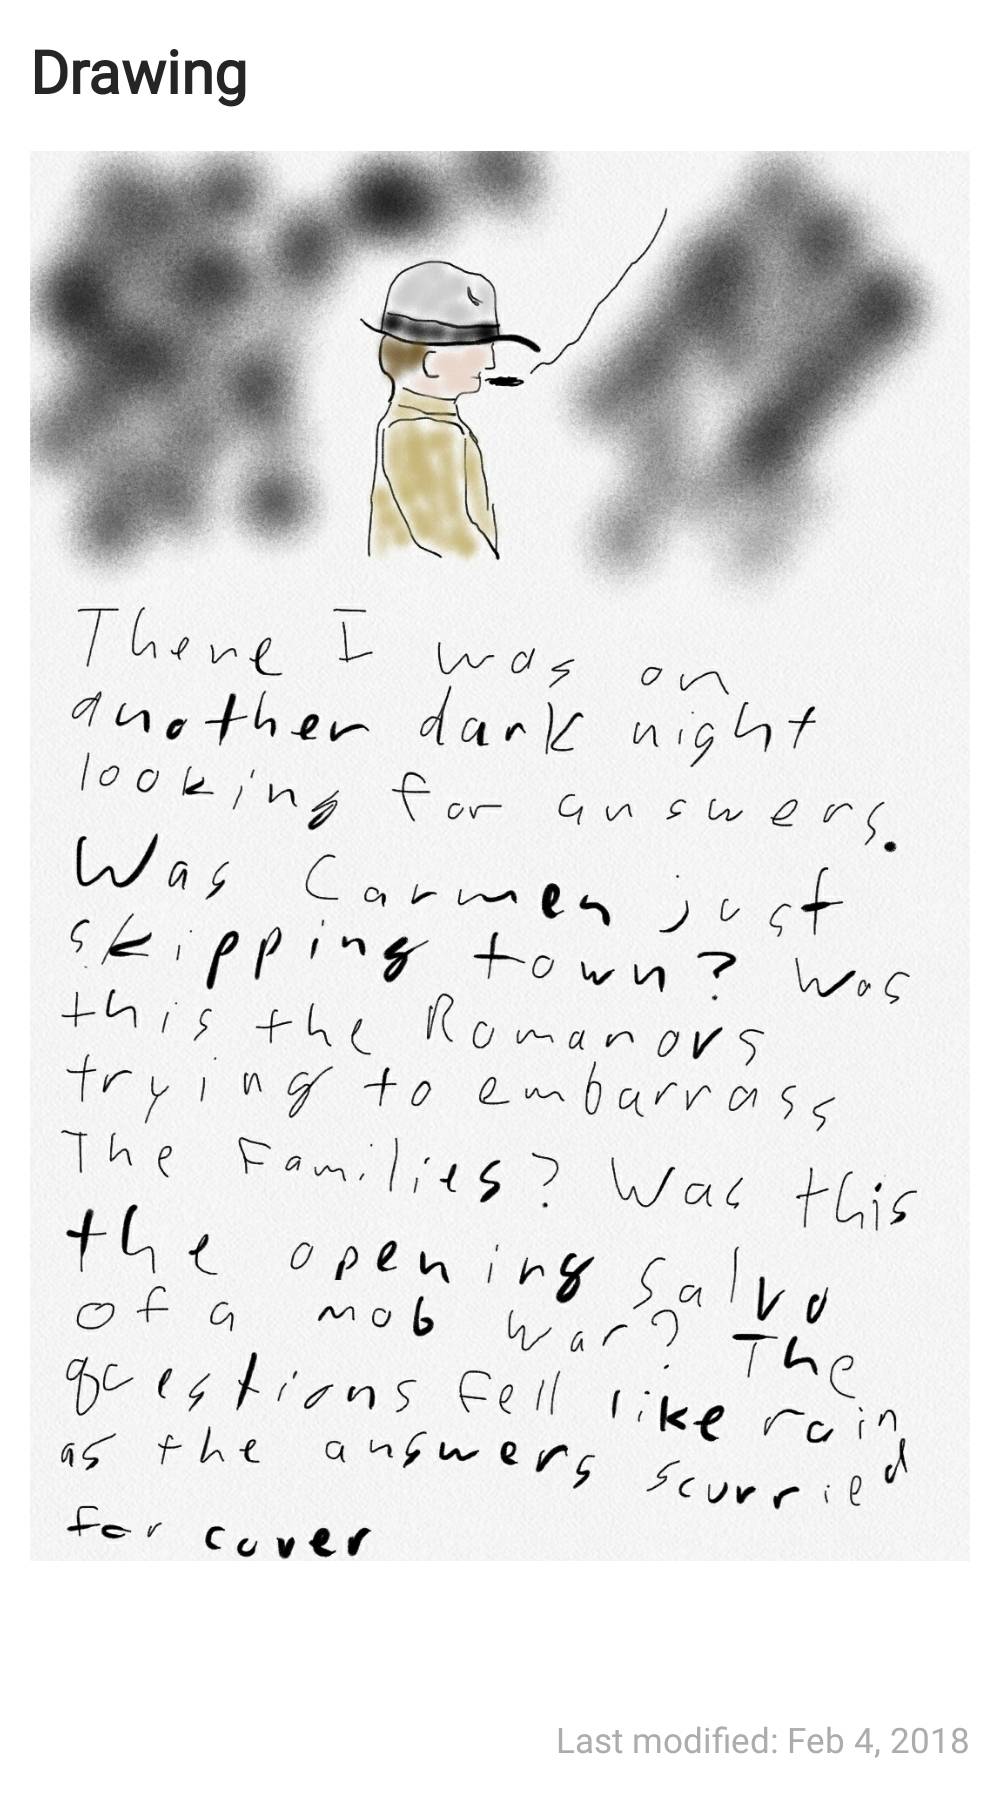 Drawing
There I was on
another dark night
looking for answers.
Was Carmen just
skipping town? Was
this the Romanovs
trying to embarrass
The Families? Was this
the opening salvo
of a mob war? The
questions fell like rain
as the answers scurried
for cover
Last modified: Feb 4, 2018